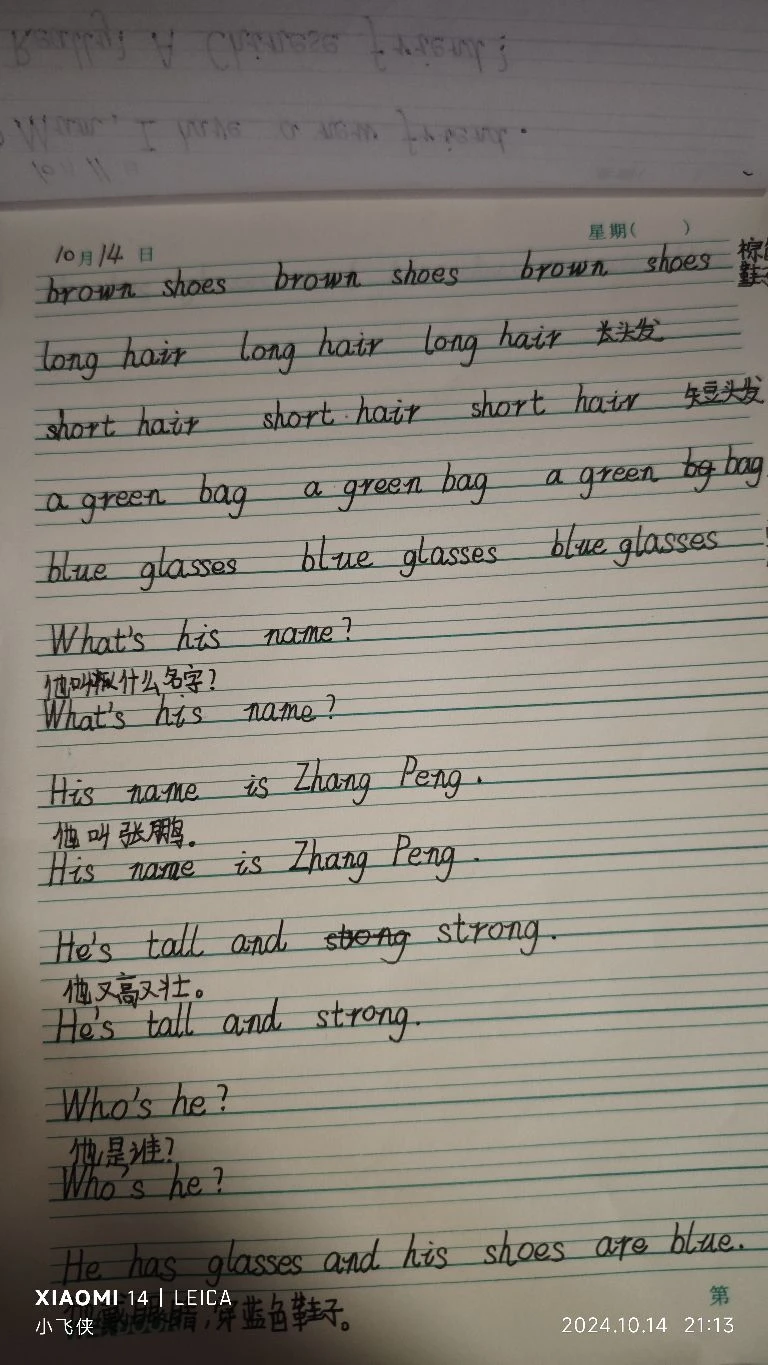 Really? A Chinese friend?
Mum, I have a new friend.
10月11
10月14日 星期( )
brown shoes brown shoes brown shoes 棕
鞋
long hair long hair long hair 长头发
short hair short hair short hair 短头发
a green bag a green bag a green bg bag
blue glasses blue glasses blue glasses
What's his name?
他叫什么名字?
What's his name?
His name is Zhang Peng.
他叫张鹏。
His name is Zhang Peng.
He's tall and strong.
他又高又壮。
He's tall and strong.
Who's he?
他是谁?
Who's he?
He has glasses and his shoes are blue.
第
XIAOMI 14 | LEICA
,穿蓝色鞋子。
小飞侠 2024.10.14 21:13